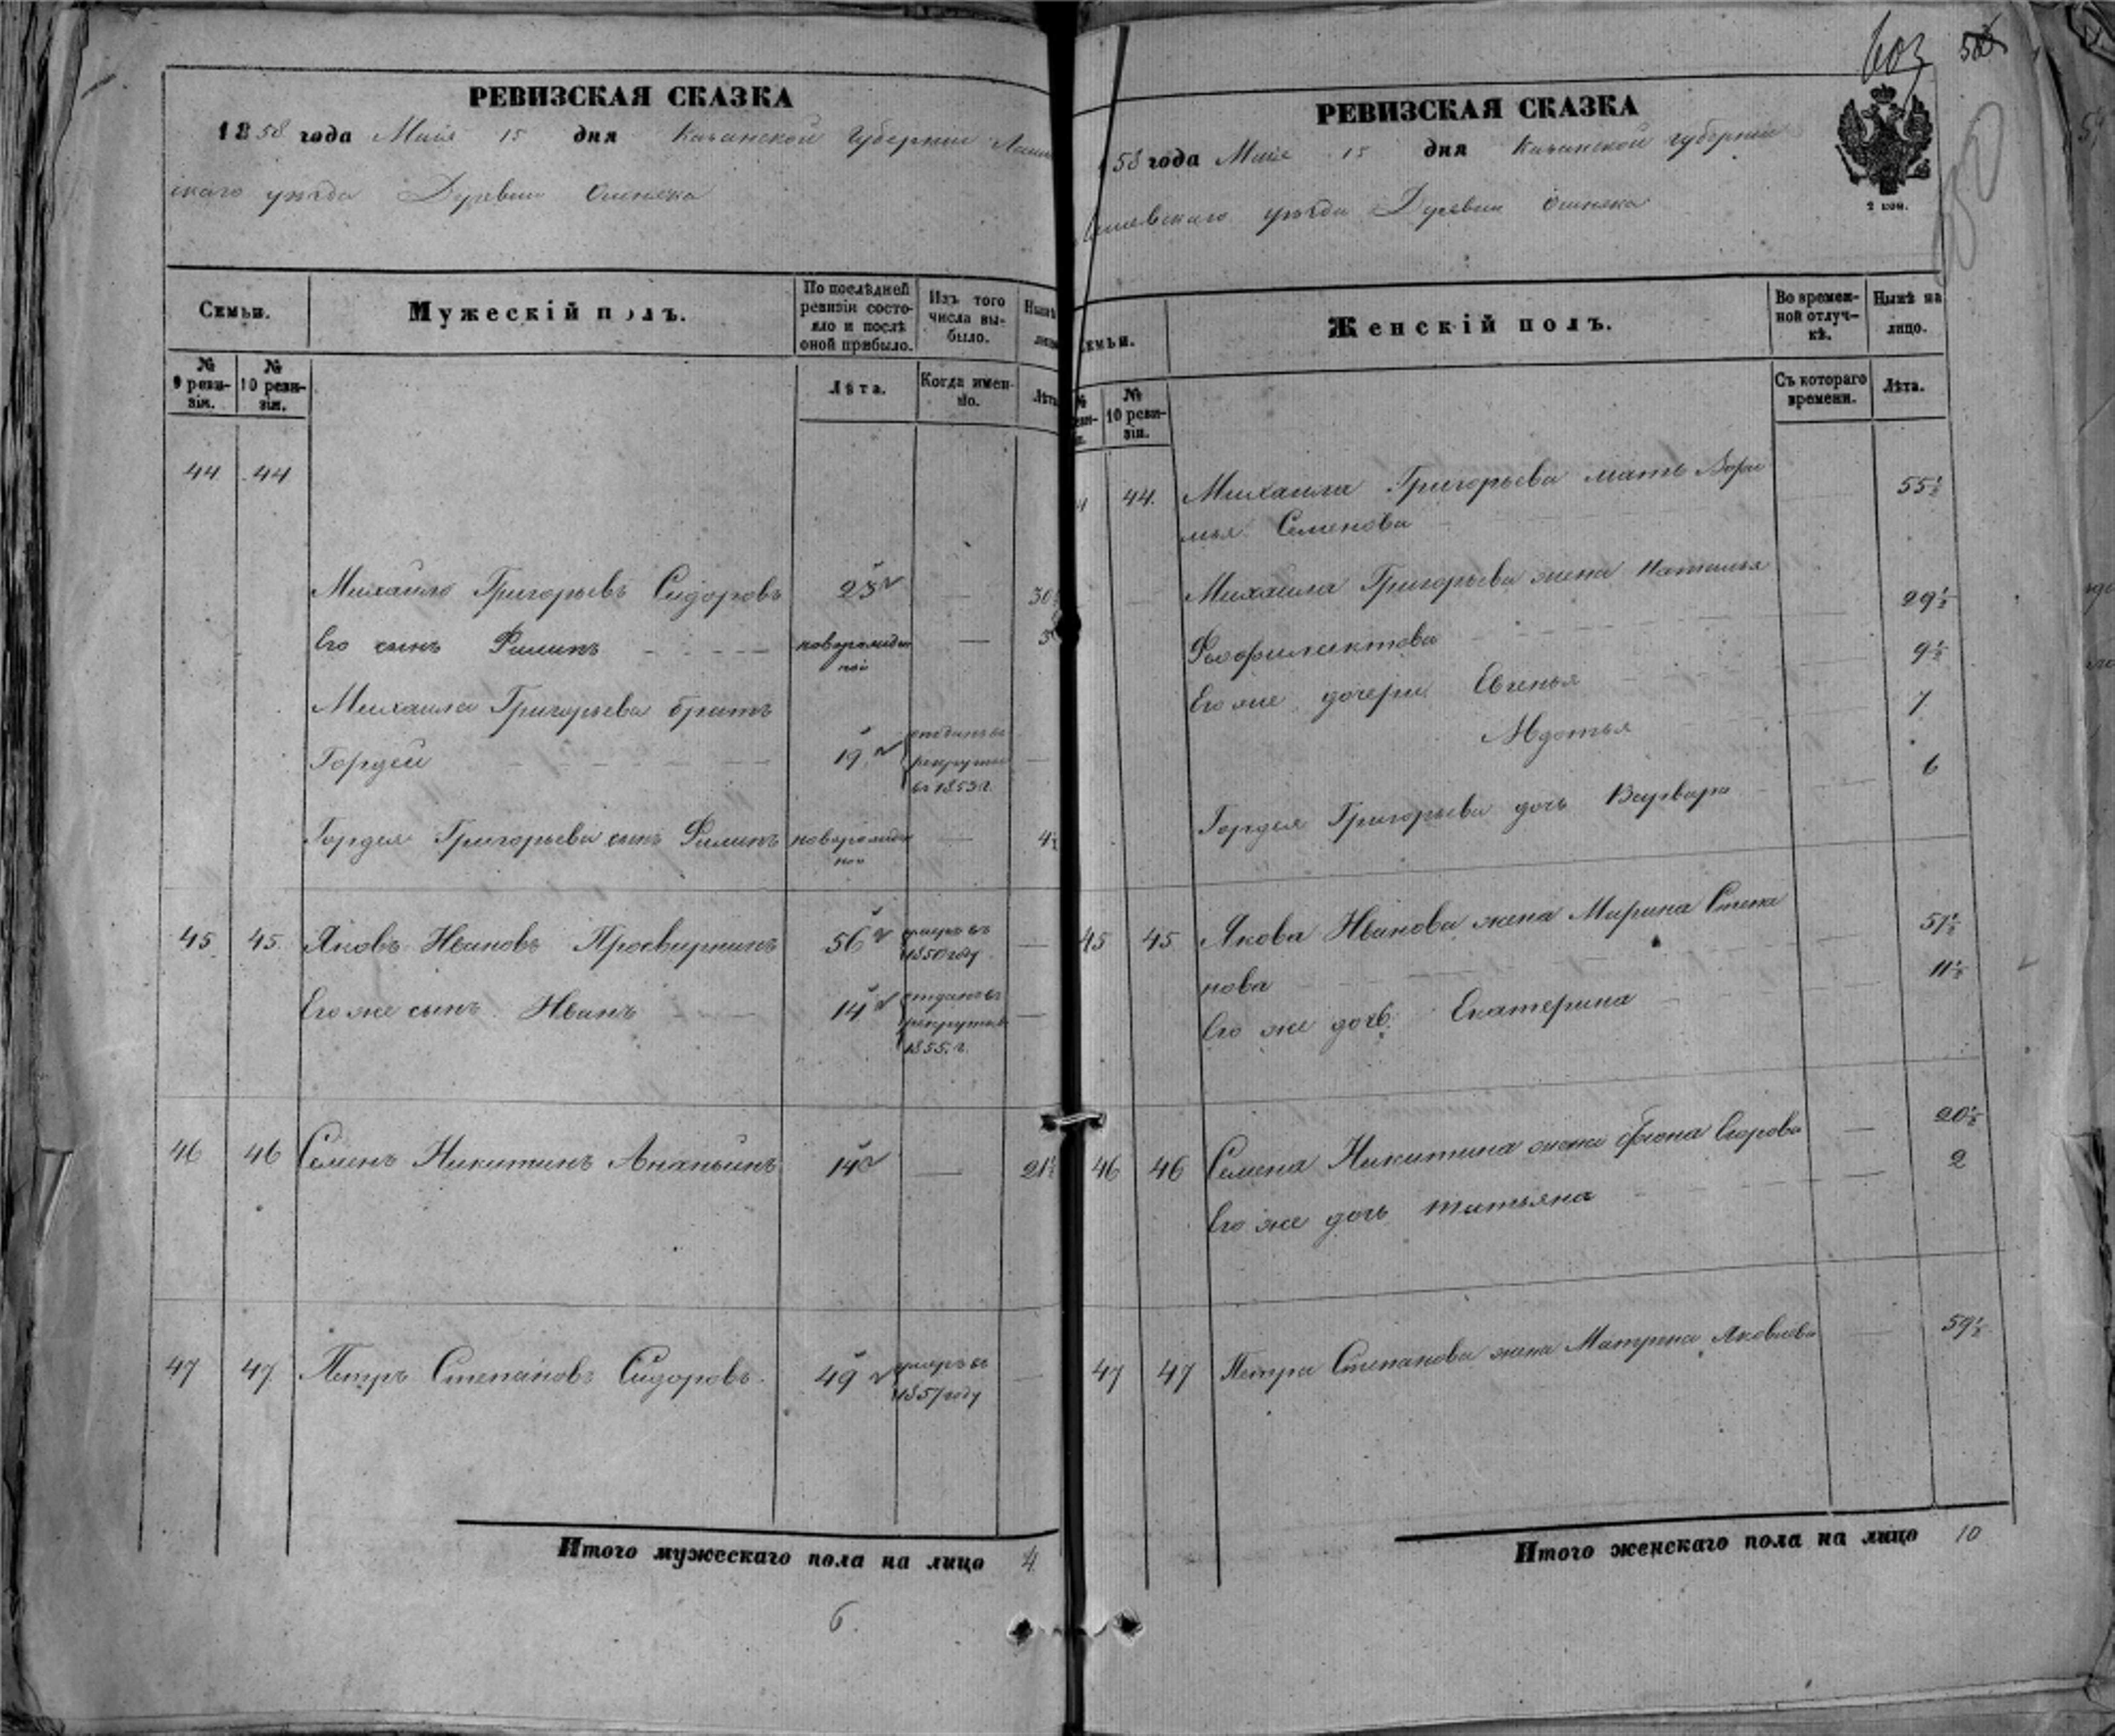 РЕВИЗСКАЯ СКАЗКА
1858 года Мая 15 дня Казанской Губернии Лаиш
скаго уѣзда Деревни Ошняка
Семьи.
Мужескій полъ.
По послѣдней ревизіи состояло и послѣ оной прибыло.
Изъ того числа выбыло.
Нынѣ
лицо
№ 9 ревизіи.
№ 10 ревизіи.
Лѣта.
Когда именно.
Лѣта
44 44
Михайло Григорьевъ Сидоровъ 23 — 30½
Его сынъ Филипъ новорожден — 3
ной
Михаила Григорьева братъ
Гордей 19 отданъ въ рекруты въ 1853 г. —
Гордея Григорьева сынъ Филипъ новорожден — 4½
ной
45 45 Яковъ Ивановъ Просвирнинъ 56 умеръ въ 1850 году —
Его же сынъ Иванъ 14 отданъ въ рекруты в 1855 г. —
46 46 Семенъ Никитинъ Ананьинъ 14 — 21½
47 47 Петръ Степановъ Сидоровъ 49 умеръ въ 1857 году —
Итого мужескаго пола на лицо 4
6
603
РЕВИЗСКАЯ СКАЗКА
58 года Мая 15 дня Казанской Губерніи
Лаишевскаго уѣзда Деревни Ошняка
2 коп.
емьи.
Женскій полъ.
Во временной отлучкѣ.
Нынѣ на лицо.
№ 10 ревизіи.
Съ котораго времени.
Лѣта.
4 44. Михаила Григорьева мать 55½
Семенова
Михаила Григорьева жена Наталья 29½
Феофилактова
Его же дочери Евгенья 9½
Авдотья 7
Гордея Григорьева дочь Варвара 6
45 45 Якова Иванова жена Марина Степа 51½
нова
Его же дочь Екатерина 11½
46 46 Семена Никитина жена Егорова — 20½
Его же дочь Татьяна — 2
47 47 Петра Степанова жена Матрена Яковлева — 59½
Итого женскаго пола на лицо 10